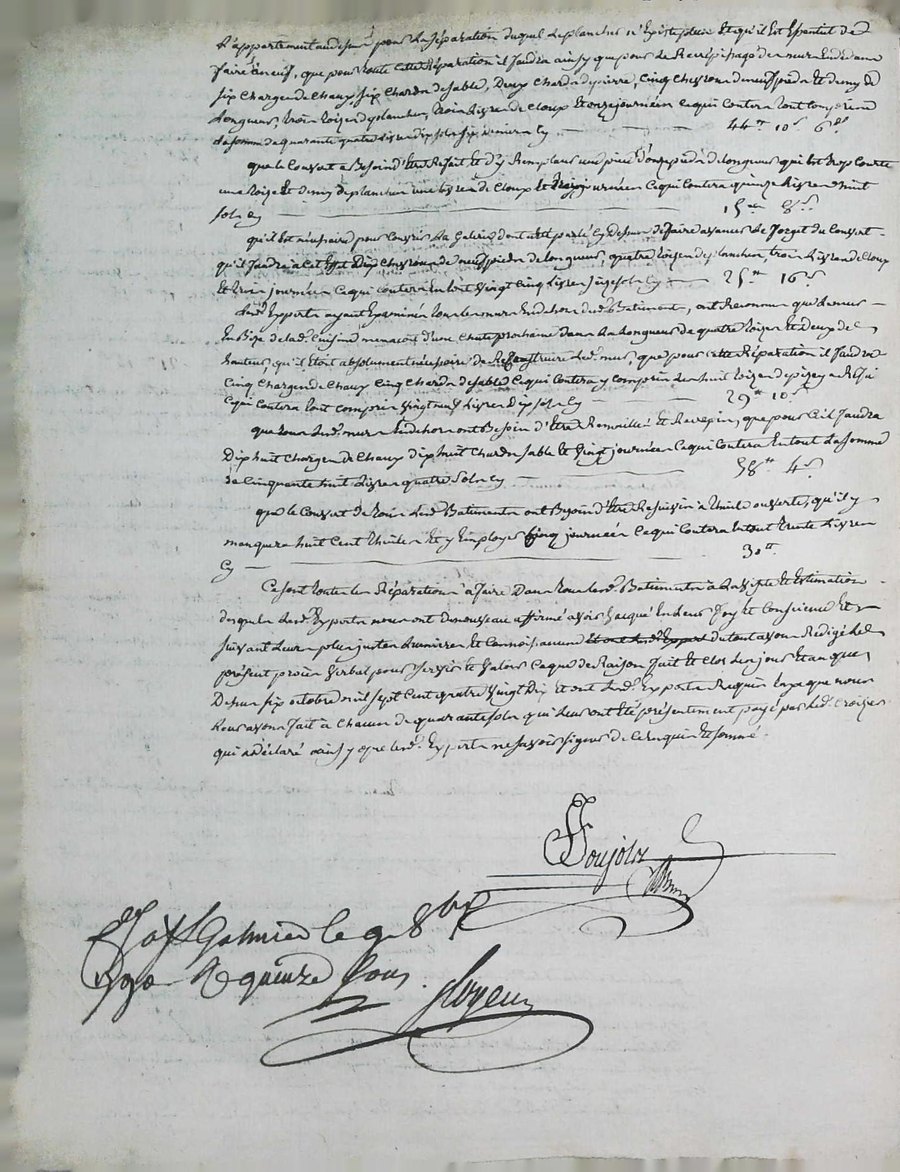 L'appartement au dessus pour la séparation duquel le plancher n'Existe plus Et qu'il Est Essentiel de
faire En neuf, que pour toute Cette Réparation il faudra ainsy que pour le Recrépissage des murs En dedans
six Charges de Chaux six Chards de sable, Deux Chards de pierre, Cinq Chevrons de neuf pieds Et demy de
longueur, trois toizes de plancher, trois Livres de Cloux Et onze journées Ce qui Contera tout Compris
La somme de quarante quatre Livres dix sols six deniers Cy — 44tt 10s 6ds
que le Couvert a Besoin d'être Refait et d'y Remplacer une piece d'onze pieds de longueur qui Est trop Courte
une toize Et demy de plancher une Livre de Cloux Et trois journées Ce qui Contera quinze Livres huit
sols Cy — 15tt 8s
qu'il Est nécessaire pour Couvrir La Galerie dont a été parlé Cy Dessus de faire avancer Le forget du Couvert
qu'il faudra a Cet Effet Dix Chevrons de neuf pieds de longueur, quatre toizes de plancher, trois Livres de Cloux
Et trois journées Ce qui Contera En tout Vingt Cinq Livres seize sols Cy — 25tt 16s
Lesds Experts ayant Examinés tous les murs En dehors dud. Batiment, ont Reconnu que le mur
En Bize de lad. Cuisine menacoit d'une Chute prochaine Dans La longueur de quatre toizes Et deux de
hauteur, qu'il Etoit absolument nécessaire de Reconstruire led. mur, que pour cette Réparation il faudra
Cinq Charges de Chaux Cinq Chards de sable Ce qui Contera y Compris les huit toizes de pizey a Refaire
Ce qui Contera tout Compris Vingt neuf Livres Dix sols Cy — 29tt 10s
que tous lesd. murs En dehors ont Besoin d'Etre Remaillé Et Recrepis, que pour Ce il faudra
Dix huit Charges de Chaux dix huit Chards sable Et Vingt journées Ce qui Contera En tout La somme
de Cinquante huit Livres quatre sols Cy — 58tt 4s
que le Couvert de tous lesd. Batiments ont Besoin d'Etre Resuivis a thuile ouverte, qu'il y
manquera huit Cent thuiles Et y Employer Cinq journées Ce qui Contera En tout trente Livres
Cy — 30tt
Ce sont toutes les Réparations a faire Dans tous lesd. Batiments à La Visite Et Estimation
desquels lesd. Experts nous ont de nouveau affirmé avoir Vacqué En leur foy Et Conscience Et
suivant leurs plus justes Lumieres Et Connoissances Et ont lesd. Experts du tout avons Rédigé Le
présent procès Verbal pour servir Et Valoir Ce que de Raison fait Et Clos Les jour Et an que
Dessus six octobre mil sept Cent quatre Vingt Dix Et ont lesd. Experts Requis taxe que nous
Leur avons fait à Chacun de quarante sols qui Leur ont Eté présentement payé par led. Croizier
qui a déclaré ainsy que lesd. Experts ne savoir signer de Ce Requis Et sommé.
Soujolz
St Galmier le 9 8bre
1790 R quinze sous